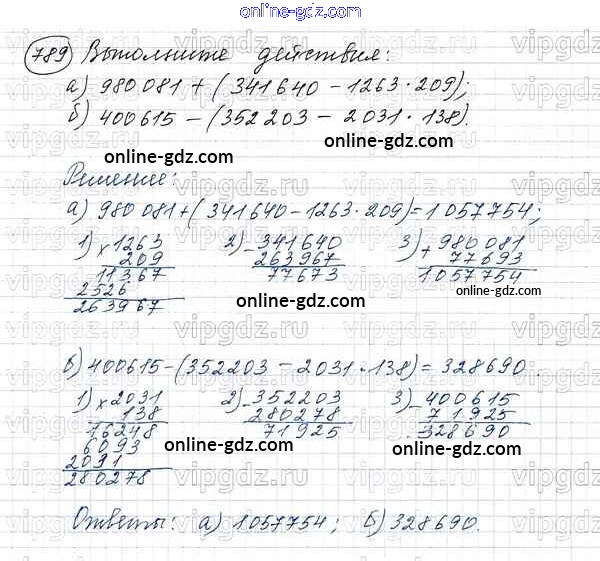 online-gdz.com
789 Выполните действия:
а) 980 081 + (341 640 - 1263 · 209);
б) 400615 - (352 203 - 2031 · 138).
online-gdz.com
Решение:
а) 980 081 + (341 640 - 1263 · 209) = 1 057 754;
1) × 1263
209
11367
2526
263967
2) - 341640
263967
77673
3) + 980 081
77693
1057754
online-gdz.com
online-gdz.com
б) 400615 - (352203 - 2031 · 138) = 328690.
1) × 2031
138
16248
6093
2031
280278
2) - 352203
280278
71925
3) - 400615
71925
328690
online-gdz.com
online-gdz.com
Ответы: а) 1057754; б) 328690.
vipgdz.com